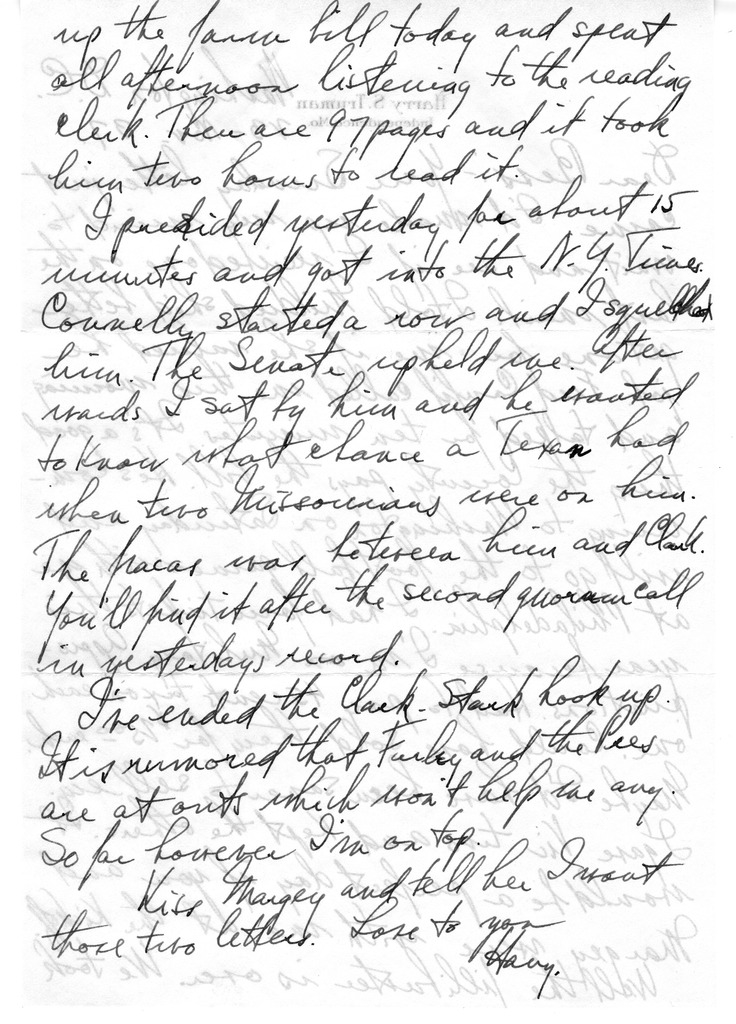 up the farm bill today and spent
all afternoon listening to the reading
clerk. There are 97 pages and it took
him two hours to read it.
I presided yesterday for about 15
minutes and got into the N.Y. Times.
Connelly started a row and I squelched
him. The Senate upheld me. After
wards I sat by him and he wanted
to know what chance a Texan had
when two Missourians were on him.
The fracas was between him and Clark.
You'll find it after the second quorum call
in yesterdays record.
I've ended the Clark-Stark hook up.
It is rumored that Farley and the Pres
are at outs which won't help me any.
So far however I'm on top.
Kiss Margey and tell her I want
those two letters. Love to you
Harry.